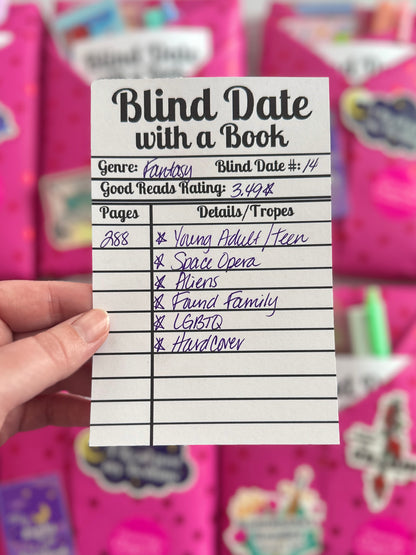 Blind Date
with a Book
Genre: Fantasy Blind Date #: 14
Good Reads Rating: 3.49☆
Pages Details/Tropes
288 ☆ Young Adult/teen
☆ Space Opera
☆ Aliens
☆ Found Family
☆ LGBTQ
☆ HardCover
Blind Date
with a Book